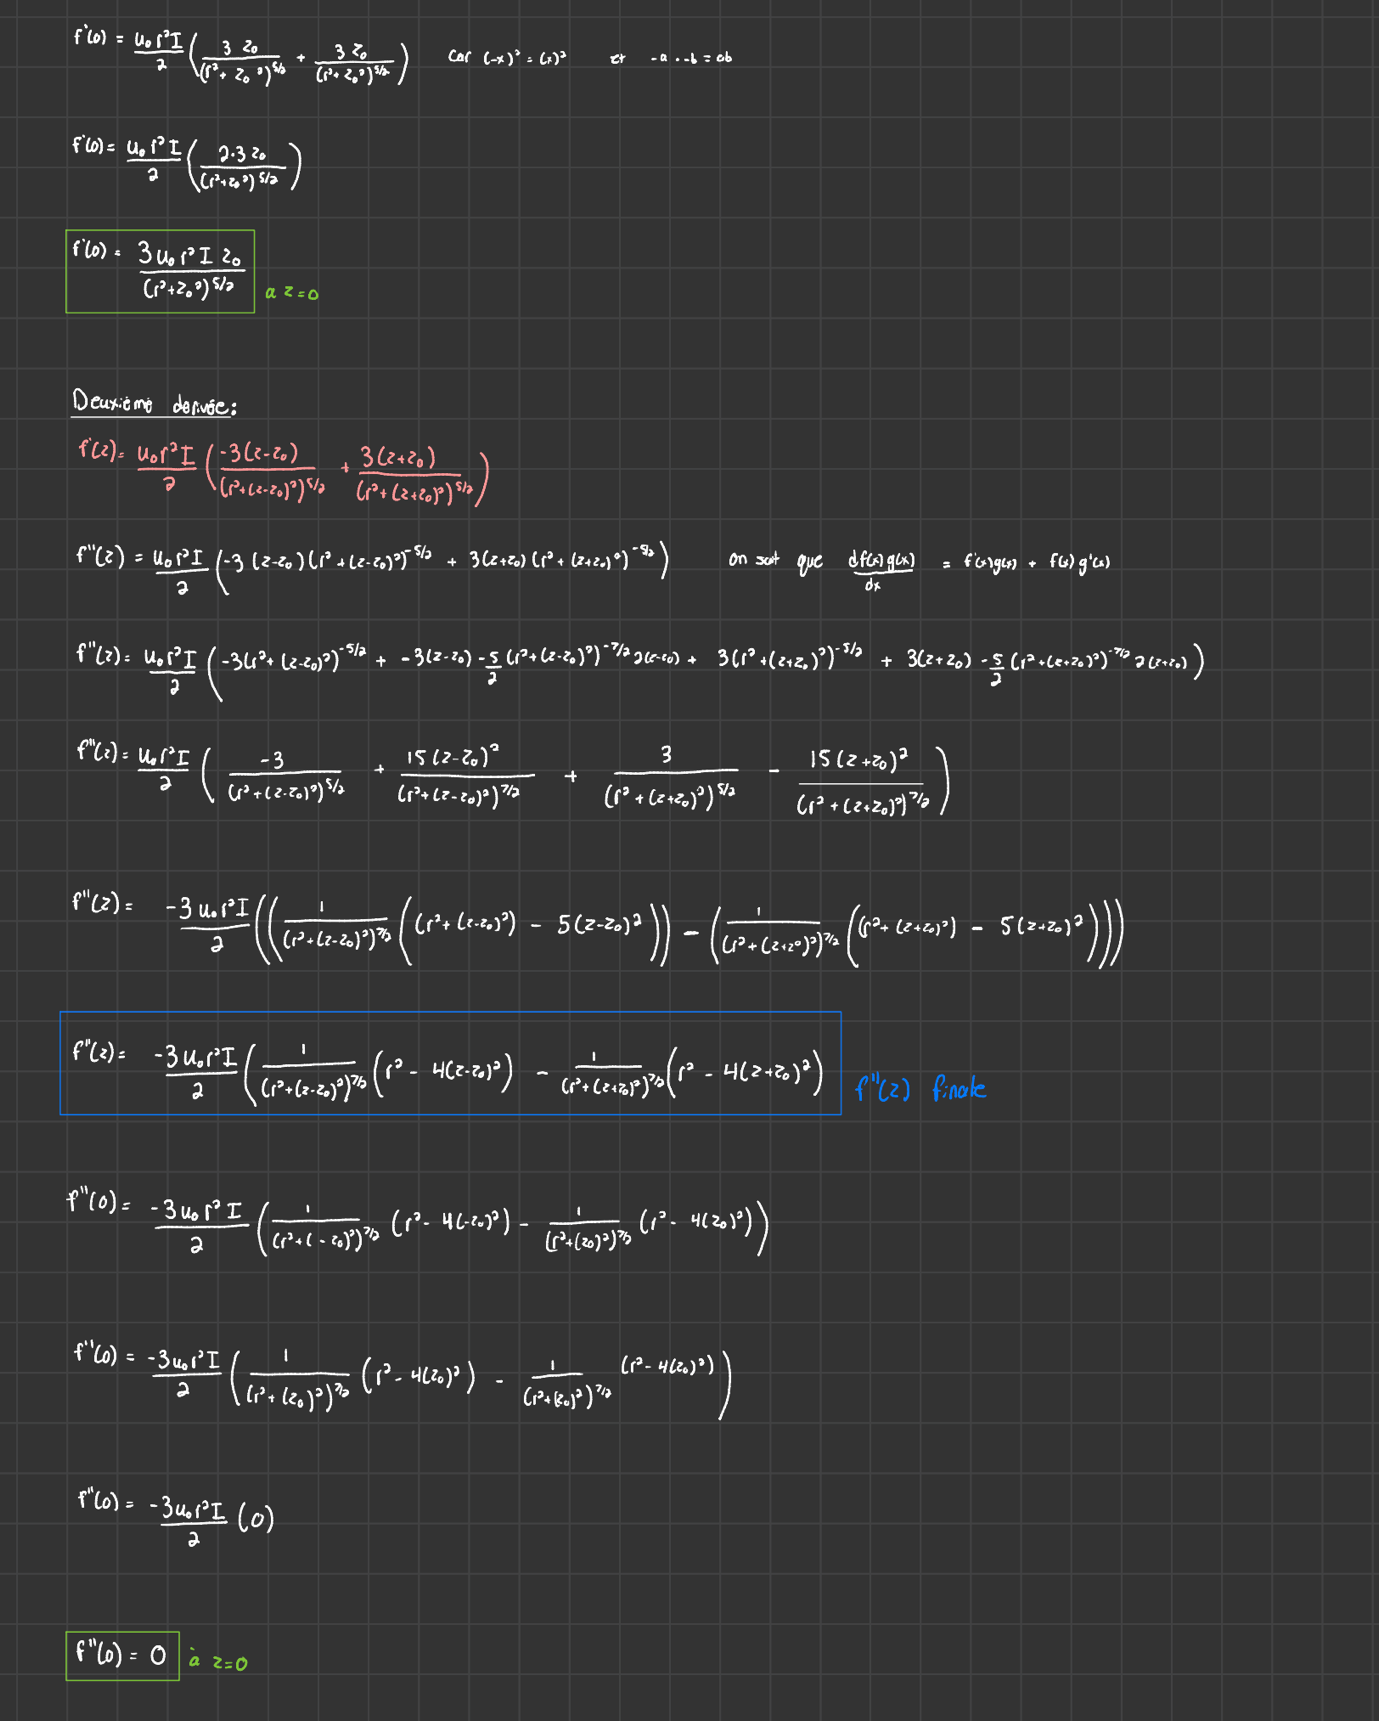 f'(0) = u₀r²I/2 (3z₀/(r²+z₀²)^5/2 + 3z₀/(r²+z₀²)^5/2) car (-x)² = (x)² et -a·-b = ab
f'(0) = u₀r²I/2 (2·3z₀/(r²+z₀²)^5/2)
f'(0) = 3u₀r²I z₀/(r²+z₀²)^5/2 a z=0
Deuxième derivée:
f'(z) = u₀r²I/2 (-3(z-z₀)/(r²+(z-z₀)²)^5/2 + 3(z+z₀)/(r²+(z+z₀)²)^5/2)
f''(z) = u₀r²I/2 (-3(z-z₀)(r²+(z-z₀)²)^-5/2 + 3(z+z₀)(r²+(z+z₀)²)^-5/2) on sait que df(x)g(x)/dx = f'(x)g(x) + f(x)g'(x)
f''(z) = u₀r²I/2 (-3(r²+(z-z₀)²)^-5/2 + -3(z-z₀) -5/2 (r²+(z-z₀)²)^-7/2 2(z-z₀) + 3(r²+(z+z₀)²)^-5/2 + 3(z+z₀) -5/2 (r²+(z+z₀)²)^-7/2 2(z+z₀))
f''(z) = u₀r²I/2 (-3/(r²+(z-z₀)²)^5/2 + 15(z-z₀)²/(r²+(z-z₀)²)^7/2 + 3/(r²+(z+z₀)²)^5/2 - 15(z+z₀)²/(r²+(z+z₀)²)^7/2)
f''(z) = -3u₀r²I/2 ((1/(r²+(z-z₀)²)^7/2 ((r²+(z-z₀)²) - 5(z-z₀)²)) - (1/(r²+(z+z⁰)²)^7/2 ((r²+(z+z₀)²) - 5(z+z₀)²)))
f''(z) = -3u₀r²I/2 (1/(r²+(z-z₀)²)^7/2 (r² - 4(z-z₀)²) - 1/(r²+(z+z₀)²)^7/2 (r² - 4(z+z₀)²) f''(z) finale
f''(0) = -3u₀r²I/2 (1/(r²+(-z₀)²)^7/2 (r² - 4(-z₀)²) - 1/(r²+(z₀)²)^7/2 (r² - 4(z₀)²))
f''(0) = -3u₀r²I/2 (1/(r²+(z₀)²)^7/2 (r² - 4(z₀)²) - 1/(r²+(z₀)²)^7/2 (r² - 4(z₀)²))
f''(0) = -3u₀r²I/2 (0)
f''(0) = 0 à z=0